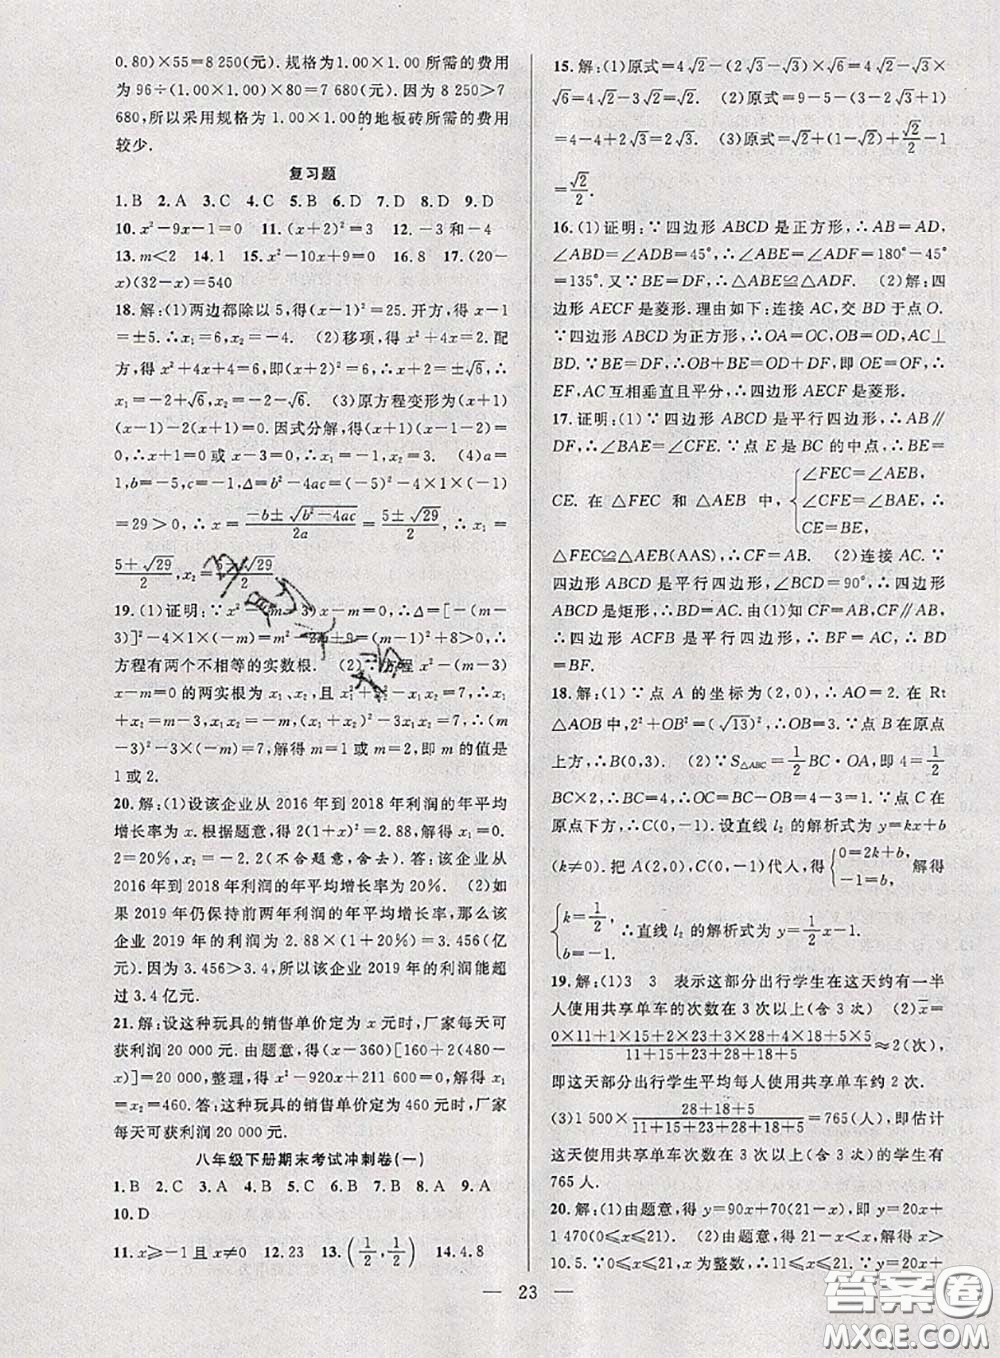 0.80)×55=8 250(元).规格为1.00×1.00所需的费用
为96÷(1.00×1.00)×80=7 680(元).因为8 250>7
680,所以采用规格为1.00×1.00的地板砖所需的费用
较少.
复习题
1.B 2.A 3.C 4.C 5.B 6.D 7.D 8.D 9.D
10.x²-9x-1=0 11.(x+2)²=3 12.-3和-4
13.m<2 14.1 15.x²-10x+9=0 16.8 17.(20-
x)(32-x)=540
18.解:(1)两边都除以5,得(x-1)²=25.开方,得x-1
=±5.∴x₁=6,x₂=-4. (2)移项,得x²+4x=2.配
方,得x²+4x+4=6,即(x+2)²=6.∴x+2=±√6,∴
x₁=-2+√6,x₂=-2-√6. (3)原方程变形为(x+1)
(x-2)-(x+1)=0.因式分解,得(x+1)(x-2-1)=0,
∴x+1=0或x-3=0,∴x₁=-1,x₂=3. (4)a=
1,b=-5,c=-1,∴Δ=b²-4ac=(-5)²-4×1×(-1)
=29>0,∴x=(-b±√(b²-4ac))/2a=(5±√29)/2,∴x₁=
(5+√29)/2,x₂=(5-√29)/2.
19.(1)证明:∵x²-(m-3)x-m=0,∴Δ=[-(m-
3)]²-4×1×(-m)=m²-2m+9=(m-1)²+8>0,∴
方程有两个不相等的实数根. (2)∵方程x²-(m-3)x-
m=0的两实根为x₁、x₂,且x₁²+x₂²-x₁x₂=7,∴x₁
+x₂=m-3,x₁x₂=-m,∴(x₁+x₂)²-3x₁x₂=7,∴(m
-3)²-3×(-m)=7,解得m=1或m=2,即m的值是
1或2.
20.解:(1)设该企业从2016年到2018年利润的年平均
增长率为x.根据题意,得2(1+x)²=2.88,解得x₁=0.
2=20%,x₂=-2.2(不合题意,舍去).答:该企业从
2016年到2018年利润的年平均增长率为20%. (2)如
果2019年仍保持前两年利润的年平均增长率,那么该
企业2019年的利润为2.88×(1+20%)=3.456(亿
元).因为3.456>3.4,所以该企业2019年的利润能超
过3.4亿元.
21.解:设这种玩具的销售单价定为x元时,厂家每天可
获利润20 000元.由题意,得(x-360)[160+2(480-
x)]=20 000,整理,得x²-920x+211 600=0,解得x₁
=x₂=460.答:这种玩具的销售单价定为460元时,厂家
每天可获利润20 000元.
八年级下册期末考试冲刺卷(一)
1.B 2.C 3.A 4.C 5.B 6.C 7.B 8.A 9.A
10.D
11.x≥-1且x≠0 12.23 13.(1/2,1/2) 14.4.8
15.解:(1)原式=4√2-(2√3-√3)×√6=4√2-√3×
√6=4√2-3√2=√2. (2)原式=9-5-(3-2√3+1)
=4-4+2√3=2√3. (3)原式=√2+(1-√2)+√2/2-1
=√2/2.
16.(1)证明:∵四边形ABCD是正方形,∴AB=AD,
∠ABD=∠ADB=45°,∴∠ABE=∠ADF=180°-45°
=135°.又∵BE=DF,∴△ABE≌△ADF. (2)解:四边
形AECF是菱形.理由如下:连接AC,交BD于点O.
∵四边形ABCD为正方形,∴OA=OC,OB=OD,AC⊥
BD.∵BE=DF,∴OB+BE=OD+DF,即OE=OF,∴
EF,AC互相垂直且平分,∴四边形AECF是菱形.
17.证明:(1)∵四边形ABCD是平行四边形,∴AB∥
DF,∴∠BAE=∠CFE.∵点E是BC的中点,∴BE=
CE.在△FEC和△AEB中,{∠FEC=∠AEB, ∠CFE=∠BAE, CE=BE,∴
△FEC≌△AEB(AAS),∴CF=AB. (2)连接AC.∵
四边形ABCD是平行四边形,∠BCD=90°,∴四边形
ABCD是矩形,∴BD=AC.由(1)得CF=AB,CF∥AB,
∴四边形ACFB是平行四边形,∴BF=AC,∴BD=
BF.
18.解:(1)∵点A的坐标为(2,0),∴AO=2.在Rt
△AOB中,2²+OB²=(√13)²,∴OB=3.∵点B在原点
上方,∴B(0,3). (2)∵S△ABC=1/2BC·OA,即4=1/2
BC×2,∴BC=4,∴OC=BC-OB=4-3=1.∵点C在
原点下方,∴C(0,-1).设直线l₂的解析式为y=kx+b
(k≠0).把A(2,0),C(0,-1)代入,得{0=2k+b, -1=b, 解得
{k=1/2, b=-1. ∴直线l₂的解析式为y=1/2x-1.
19.解:(1)3 3 表示这部分出行学生在这天约有一半
人使用共享单车的次数在3次以上(含3次) (2)x̄=
(0×11+1×15+2×23+3×28+4×18+5×5)/(11+15+23+28+18+5)≈2(次),
即这天部分出行学生平均每人使用共享单车约2次.
(3)1 500×(28+18+5)/(11+15+23+28+18+5)=765(人),即估计
这天使用共享单车次数在3次以上(含3次)的学生有
765人.
20.解:(1)由题意,得y=90x+70(21-x),即y=20x+
1 470(0≤x≤21). (2)由题意,得21-x<x,解得x>
10.5.∵0≤x≤21,x为整数,∴11≤x≤21.∵y=20x+
23
答案卷
MXQE.COM